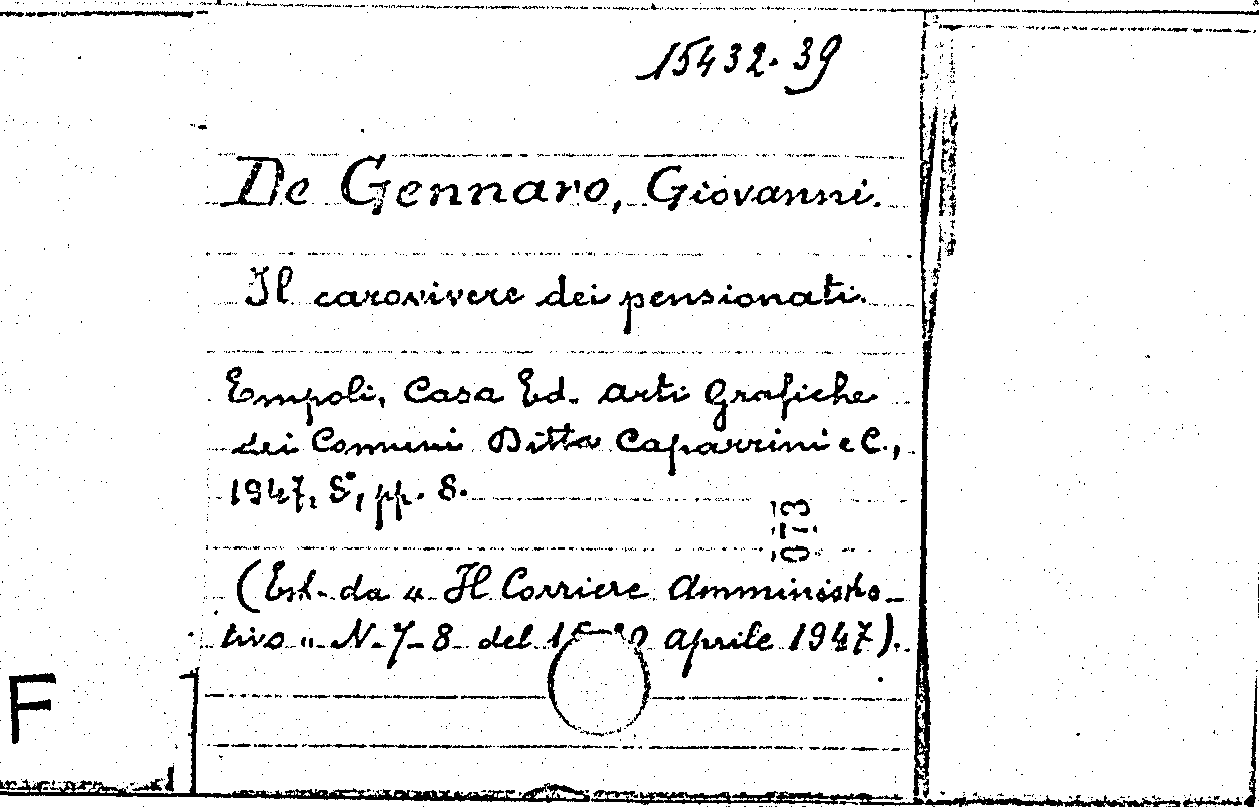 15432.39
De Gennaro, Giovanni.
Il carovivere dei pensionati.
Empoli, Casa Ed. Arti Grafiche
dei Comuni Ditta Caparrini e C.,
1947, 8°, pp. 8.
073
(Est. da " Il Corriere Amministra-
tivo " N. 7-8 del aprile 1947).
F